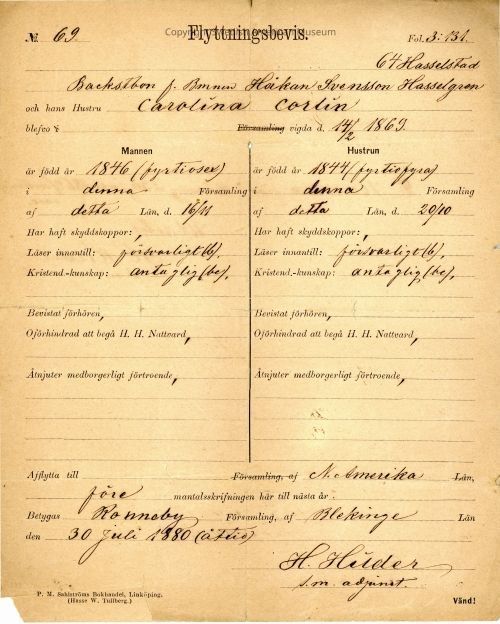 № 69 Flyttningsbevis. Fol. 3:131.
64 Hasselstad
Backstbon f. Bmnen Håkan Svensson Hasselgren
och hans Hustru Carolina Cortin
blefvo i Församling vigda d. 14/2 1869.
Mannen
är född år 1846 (fyrtiosex)
i denna Församling
af detta Län, d. 16/11
Har haft skyddskoppor: ,
Läser innantill: försvarligt (b),
Kristend.-kunskap: antaglig (bc),
Bevistat förhören, ,
Oförhindrad att begå H. H. Nattvard, ,
Åtnjuter medborgerligt förtroende, ,
Hustrun
är född år 1844 (fyrtiofyra)
i denna Församling
af detta Län, d. 20/10
Har haft skyddskoppor: ,
Läser innantill: försvarligt (b),
Kristend.-kunskap: antaglig (bc),
Bevistat förhören, ,
Oförhindrad att begå H. H. Nattvard, ,
Åtnjuter medborgerligt förtroende, ,
Afflytta till Församling, af N. Amerika Län,
före mantalsskrifningen här till nästa år.
Betygas Ronneby Församling, af Blekinge Län
den 30 Juli 1880 (åttio)
H. Hülder
s.m. adjunct.
P. M. Sahlströms Bokhandel, Linköping.
(Hasse W. Tullberg.)
Vänd!